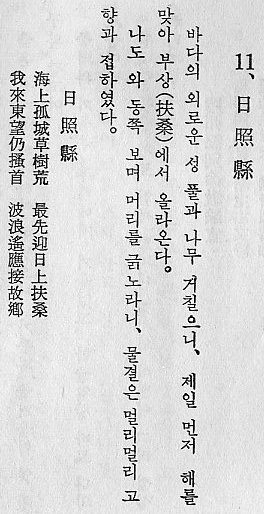 11、日照縣
바다의 외로운 성 풀과 나무 거칠으니、 제일 먼저 해를
맞아 부상(扶桑)에서 올라온다。
나도 와 동쪽 보며 머리를 긁노라니、 물결은 멀리멀리 고
향과 접하였다。
日照縣
海上孤城草樹荒 最先迎日上扶桑
我來東望仍搔首 波浪遙應接故鄉